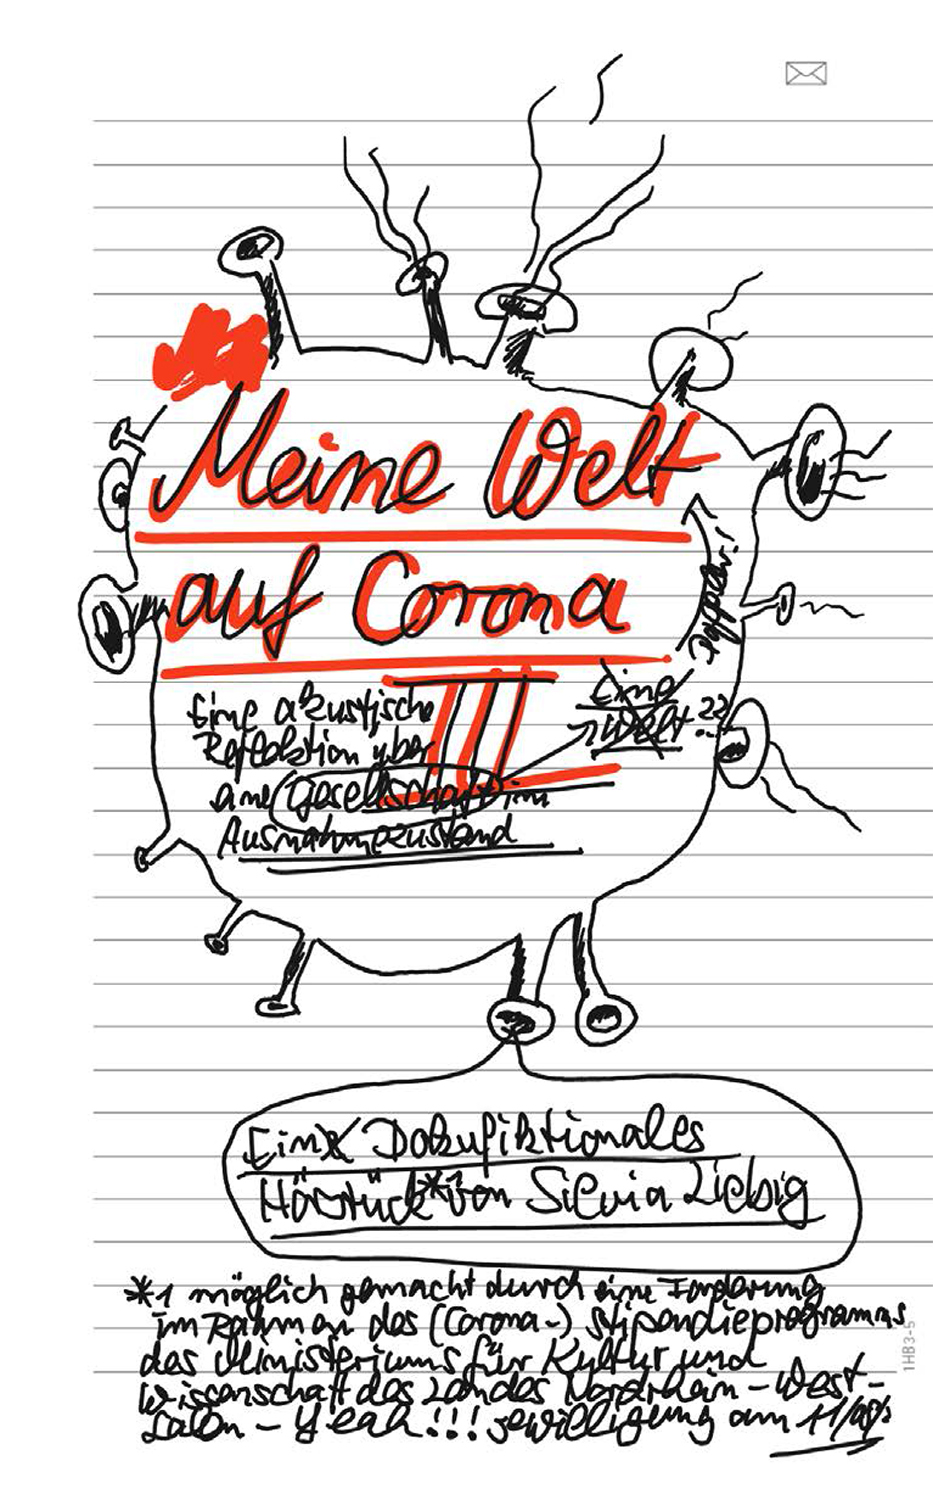 Meine Welt
auf Corona
III
doppelt!!
Eine akustische
Reflektion über
eine Gesellschaft im
Ausnahmezustand
Eine
Welt??
Ein Dokufiktionales
Hörstück*1 von Silvia Liebig
*1 möglich gemacht durch eine Förderung
im Rahmen des (Corona-) Stipendieprogramms
des Ministeriums für Kultur und
Wissenschaft des Landes Nordrhein-West-
falen - Yeah!!! Bewilligung am
1HB3-5